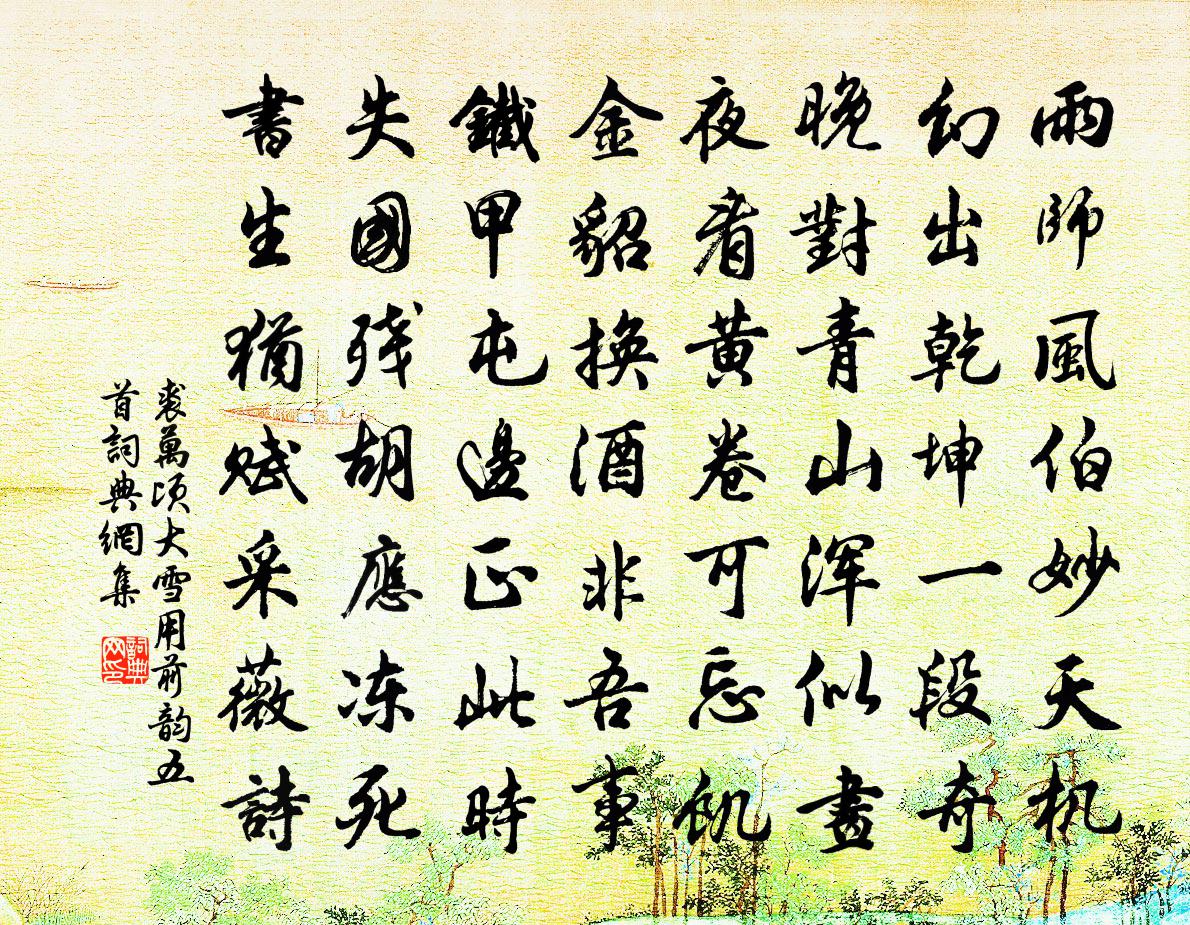 雨師風伯妙天机
幻出乾坤一段奇
晚對青山浑似畫
夜看黄卷可忘飢
金貂換酒非吾事
鐵甲屯邊正此時
失國残胡應冻死
書生猶赋采薇詩
裘萬顷大雪用前韵五
首詞典網集
詞典网印